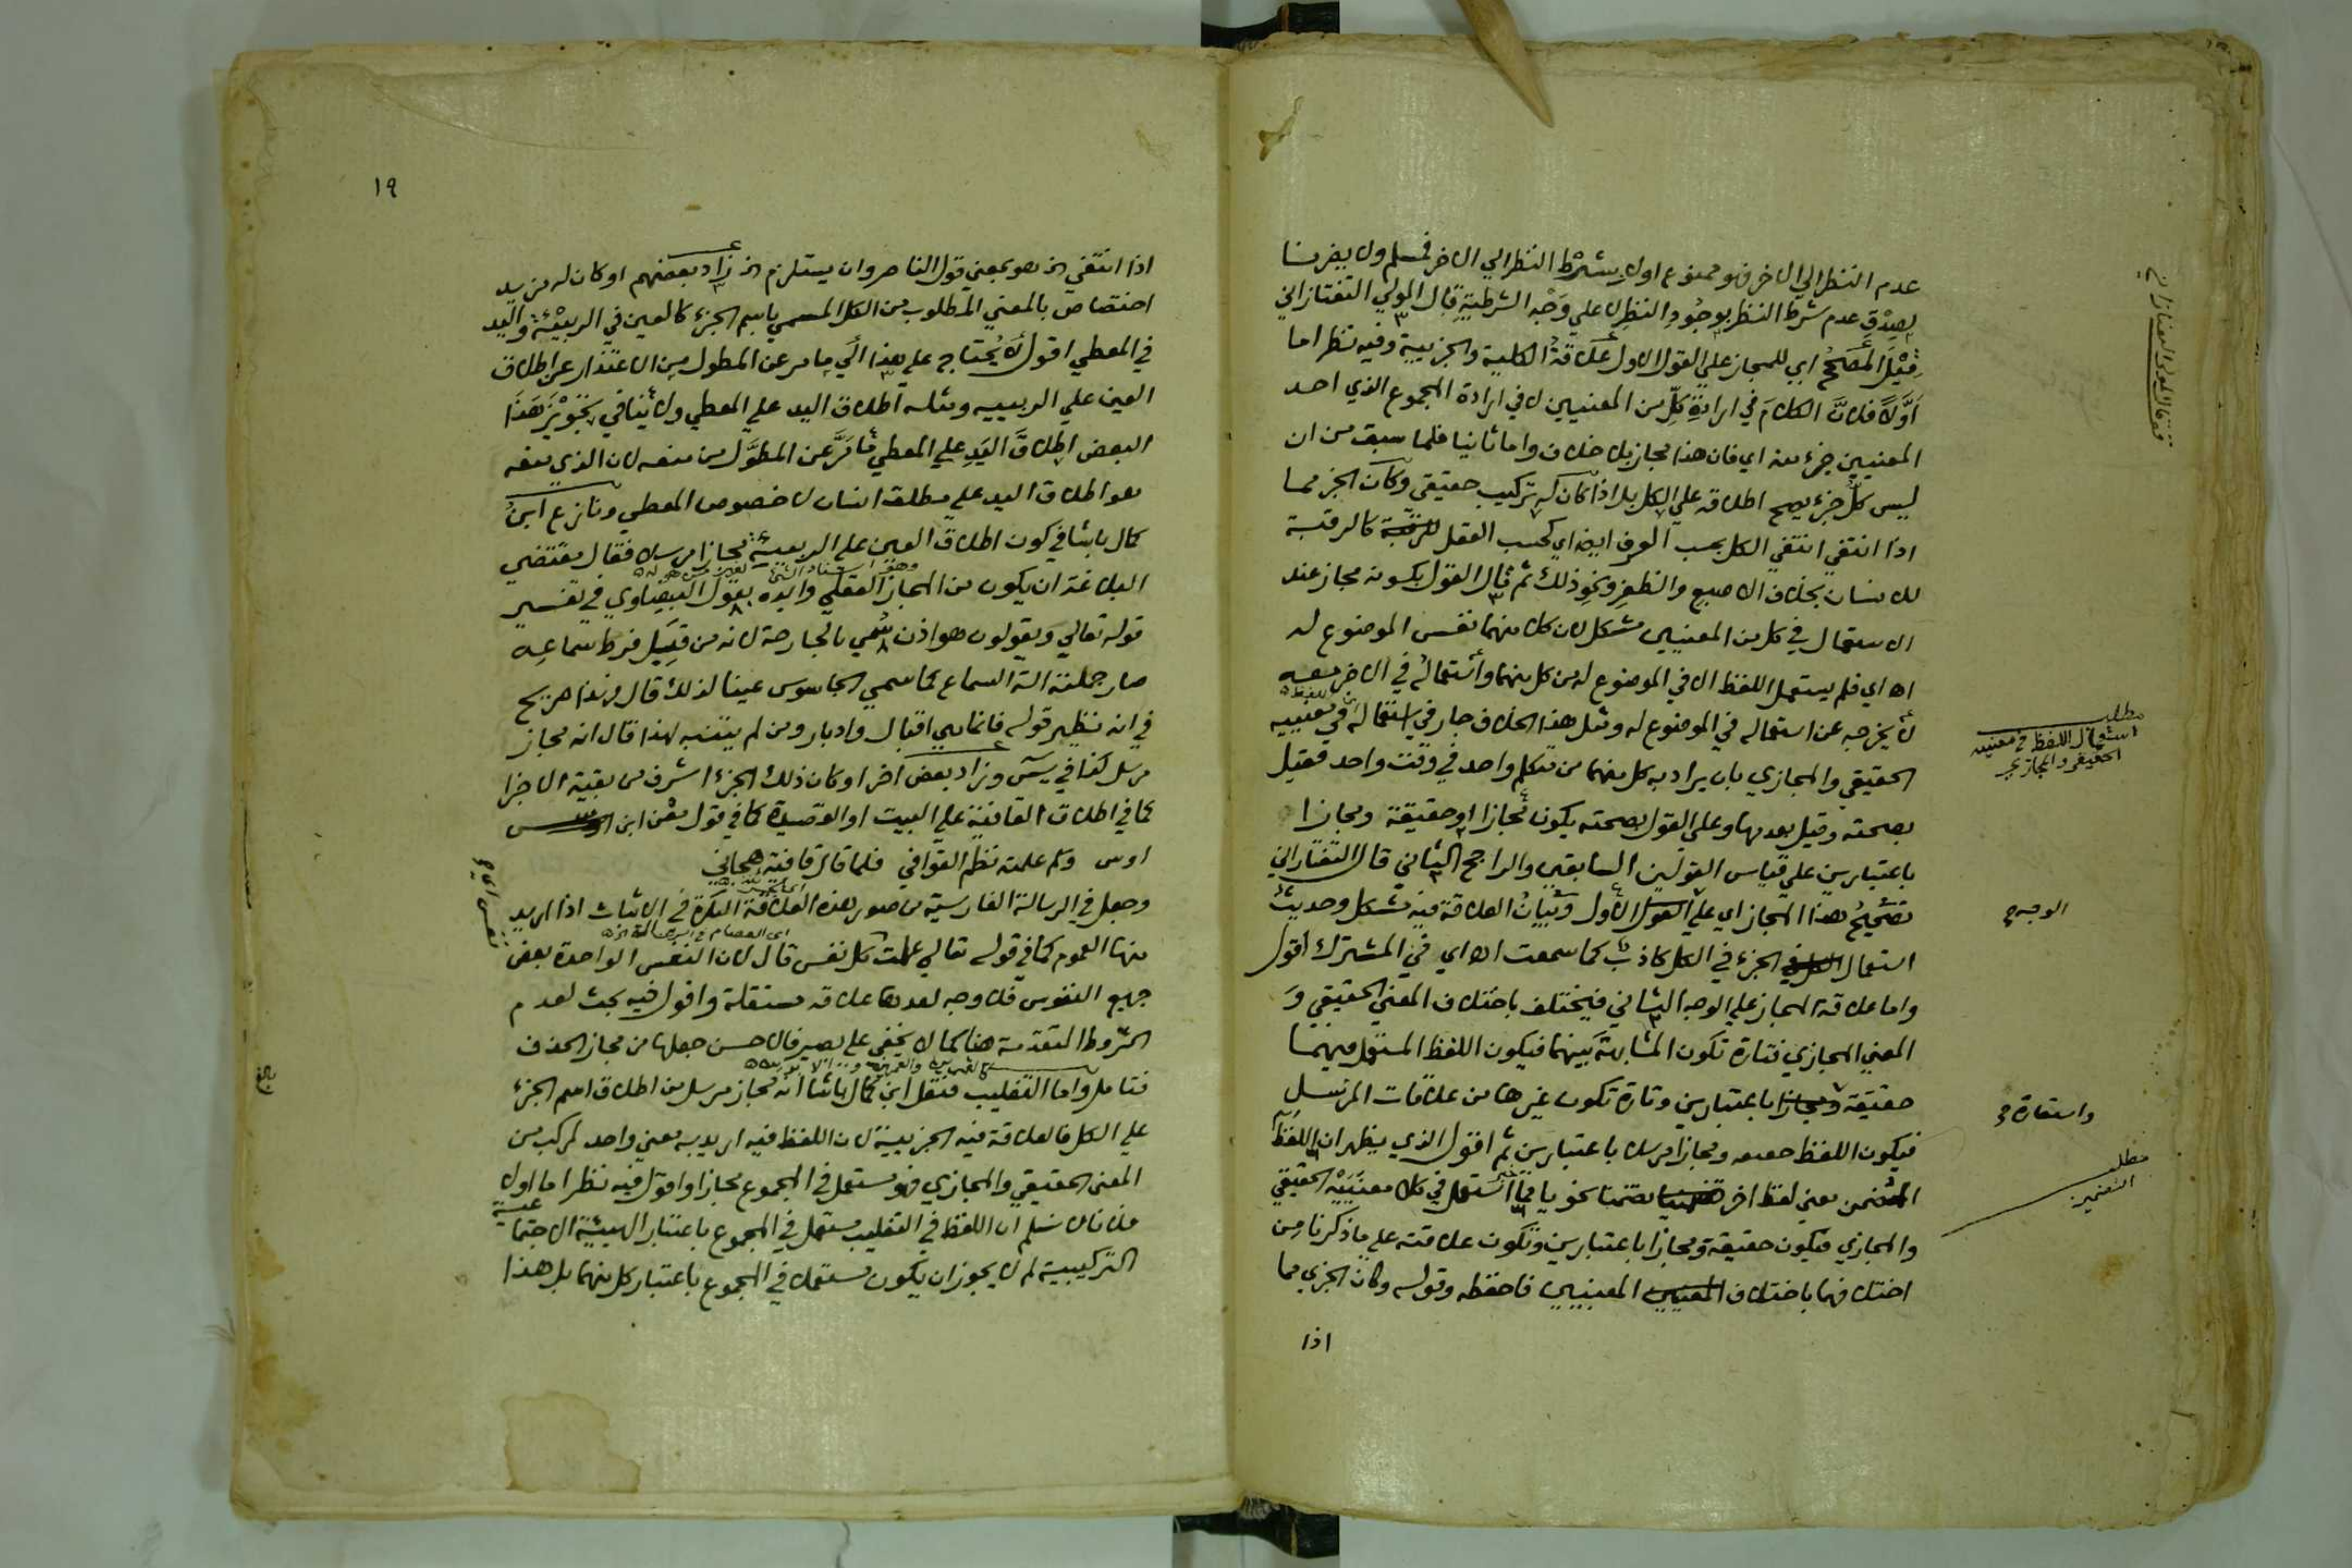 عدم النظر الي الاخر فهو ممنوع اولا يشترط النظر الي الاخر فمسلم ولا يضرنا
لصدق عدم شرط النظر بوجود النظر لا علي وجه الشرطية قال المولي التفتازاني
قيل المصحح اي للمجاز علي القول الاول علاقة الكلية والجزيية وفيه نظر اما
اولا فلان الكلام في ارادة كل من المعنيين لا في ارادة المجموع الذي احد
المعنيين جزء منه اي فان هذا مجاز بلا خلاف واما ثانيا فلما سبق من ان
ليس كل جزء يصح اطلاقه علي الكل بل اذا كان له تركيب حقيقي وكان الجزء مما
اذا انتفي انتفي الكل بحسب العرف ايضا اي كحسب العقل كالرقبة
للانسان بخلاف الاصبع والظفر ونحو ذلك ثم قال القول بكونه مجاز عند
الاستعمال في كل من المعنيين مشكل لان كلا منهما نفس الموضوع له
اه اي فلم يستعمل اللفظ الا في الموضوع له من كل منهما واستعماله في الاخر معه
لا يخرجه عن استعماله في الموضوع له ومثل هذا الخلاف جار في استعماله في معنييه
اي اللفظ
الحقيقي والمجازي بان يراد به كل منهما من متكلم واحد في وقت واحد فقيل
بصحته وقيل بعدمها وعلي القول بصحته يكون مجازا او حقيقة ومجازا
باعتبارين علي قياس القولين السابقين والراجح الثاني قال التفتازاني
تصحيح هذا المجاز اي علي القول الاول وبيان العلاقة فيه مشكل وحديث
استعمال الجزء في الكل كاذب كما سمعت اه اي في المشترك اقول
واما علاقة المجاز علي الوجه الثاني فيختلف باختلاف المعني الحقيقي و
المعني المجازي فتارة تكون المشابهة بينهما فيكون اللفظ المستعمل فيهما
حقيقة ومجازا باعتبارين وتارة تكون غيرها من علاقات المرسل
فيكون اللفظ حقيقة ومجازا مرسلا باعتبارين ثم اقول الذي يظهر ان اللفظ
المضمن معني لفظ اخر تضمنا نحويا مما استعمل في كلا معنييه الحقيقي
والمجازي فيكون حقيقة ومجازا باعتبارين وتكون علاقته علي ما ذكرنا من
اختلافها باختلاف المعنيين فاحفظه وقوله وكان الجزء مما
اذا
فقال المولي التفتازاني
مطلب
استعمال اللفظ في معنييه
الحقيقي والمجازي
الوجه
واستعارة
مطلب
التضمين
١٩
اذا انتفي اه هو بمعني قول الناصر وان يستلزم اه زاد بعضهم او كان له مزيد
اختصاص بالمعني المطلوب من الكل المسمي باسم الجزء كالعين في الربيئة واليد
في المعطي اقول لا يحتاج علي هذا الي ما مر عن المطول من الاعتذار عن اطلاق
العين علي الربيية ومثله اطلاق اليد علي المعطي ولا ينافي تجويز هذا
البعض اطلاق اليد علي المعطي ما مر عن المطول من منعه لان الذي منعه
هو اطلاق اليد علي مطلق انسان لا خصوص المعطي ونازع ابن
كمال باشا في كون اطلاق العين علي الربيية مجازا مرسلا فقال مقتضي
وهو اسناد الشي لغير من هو له
البلاغة ان يكون من المجاز العقلي وايده بقول البيضاوي في تفسير
قوله تعالي ويقولون هو اذن سمي بالجارحة لانه من قبيل فرط سماعه
صار جملته الة السماع كما سمي الجاسوس عينا لذلك قال وهذا صريح
في انه نظير قوله فانما هي اقبال وادبار ومن لم يتنبه لهذا قال انه مجاز
مرسل كذا في يس وزاد بعض اخر او كان ذلك الجزء اشرف من بقية الاجزا
كما في اطلاق القافية علي البيت او القصيدة كما في قول معن ابن
اوس وكم علمته نظم القوافي فلما قال قافية هجاني
وجعل في الرسالة الفارسية من صور هذه العلاقة النكرة في الاثبات اذا اريد
اي العصام في الرسالة
منها العموم كما في قوله تعالي علمت كل نفس قال لان النفس الواحدة بعض
جميع النفوس فلا وجه لعدها علاقة مستقلة واقول فيه بحث لعدم
الشروط المتقدمة هنا كما لا يخفي علي بصير فالاحسن جعلها من مجاز الحذف
فتامل واما التغليب فنقل ابن كمال باشا انه مجاز مرسل من اطلاق اسم الجزء
علي الكل فالعلاقة فيه الجزيية لان اللفظ فيه اريد به معني واحد مركب من
المعني الحقيقي والمجازي فهو مستعمل في المجموع مجازا واقول فيه نظر اما اولا
فلانا لا نسلم ان اللفظ في التغليب مستعمل في المجموع باعتبار الهيئة الاجتماعية
التركيبية لم لا يجوز ان يكون مستعملا في المجموع باعتبار كل منهما بل هذا
بلغ